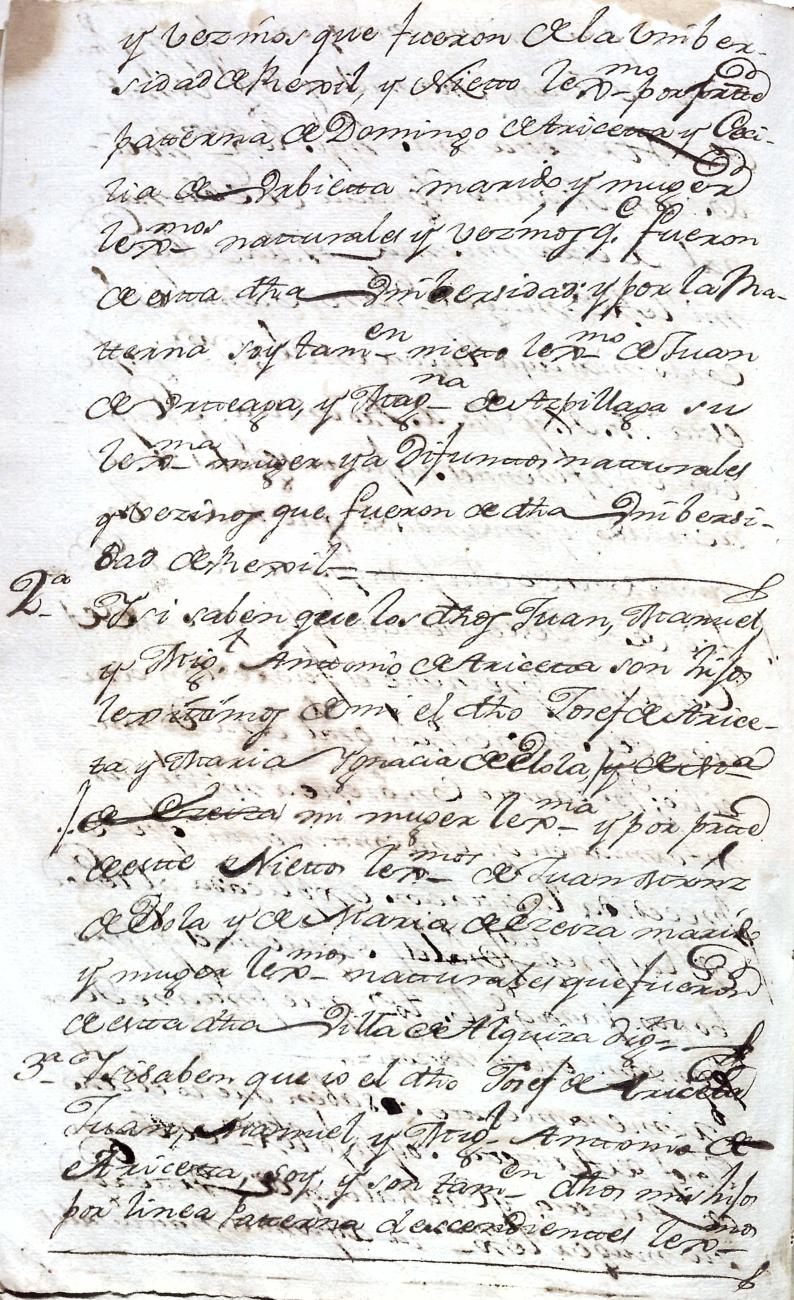 y vezinos que fueron de la Vniber-
sidad de Rexil, y Nietto lexmo por partte
patterna de Domingo de Aricetta y Ceci-
lia de Urbietta marido y muger
lexmos natturales y vezinos q.e fueron
de estta dha Vnibersidad; y por la Ma-
tterna soy tamen nietto lexmo de Juan
de Urtteaga, y Magna de Azpillaga su
lexma muger ya Difunttos natturales
y Vezinos que fueron de dha Vnibersi-
dad de Rexil
2a Ysi saben que los dhos Juan, Manuel,
y Migl Anttonio de Aricetta son hijos
lexittimos de mi el dho Josef de Arice-
ta y Maria Ygnacia de Elola,
mi muger lexma y por partte
de estte Niettos lexmos de Juan Mrnz
de Elola y de Maria de Ereiza marido
y muger lexmos natturales que fueron
de estta dha Villa de Alquiza dig
3a Ysi saben que io el dho Josef de Aricetta
Juan, Manuel, y Migl Anttonio de
Aricetta, soy, y son tamen dhos mis hijos
por linea Patterna descendienttes lexmos